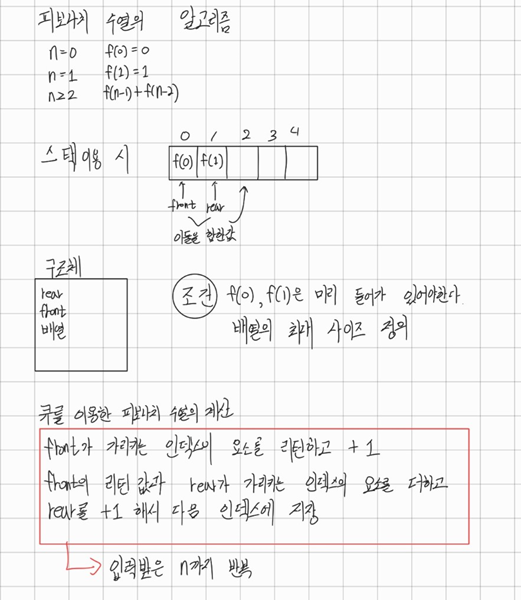 피보나치 수열의 알고리즘
n=0 f(0)=0
n=1 f(1)=1
n≥2 f(n-1)+f(n-2)
0 1 2 3 4
스택이용 시 f(0) f(1)
front rear
이둘을 합한값
구조체
rear
front
배열
조건 f(0), f(1)은 미리 들어가 있어야한다
배열의 최대 사이즈 정의
큐를 이용한 피보나치 수열의 계산
front가 가리키는 인덱스의 요소를 리턴하고 +1
front의 리턴 값과 rear가 가리키는 인덱스의 요소를 더하고
rear를 +1 해서 다음 인덱스에 저장
입력받은 n까지 반복